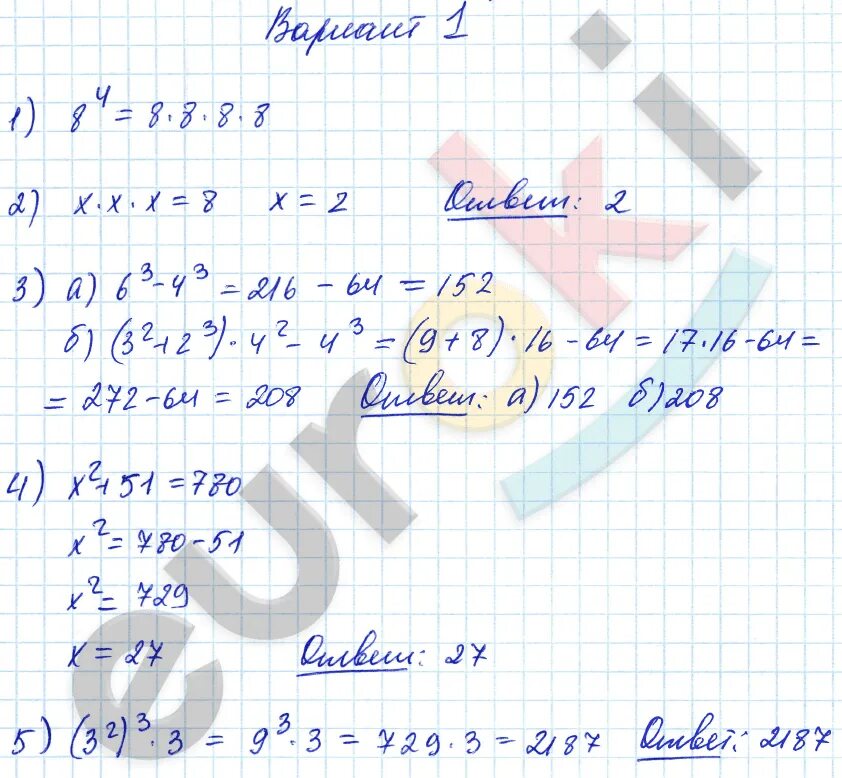 Вариант 1
1) 8⁴ = 8·8·8·8
2) x·x·x = 8 x = 2 Ответ: 2
3) а) 6³-4³ = 216 - 64 = 152
б) (3²+2³)·4²-4³ = (9+8)·16-64 = 17·16-64 =
= 272-64 = 208 Ответ: а) 152 б) 208
4) x²+51 = 780
x² = 780-51
x² = 729
x = 27 Ответ: 27
5) (3²)³·3 = 9³·3 = 729·3 = 2187 Ответ: 2187
euroki